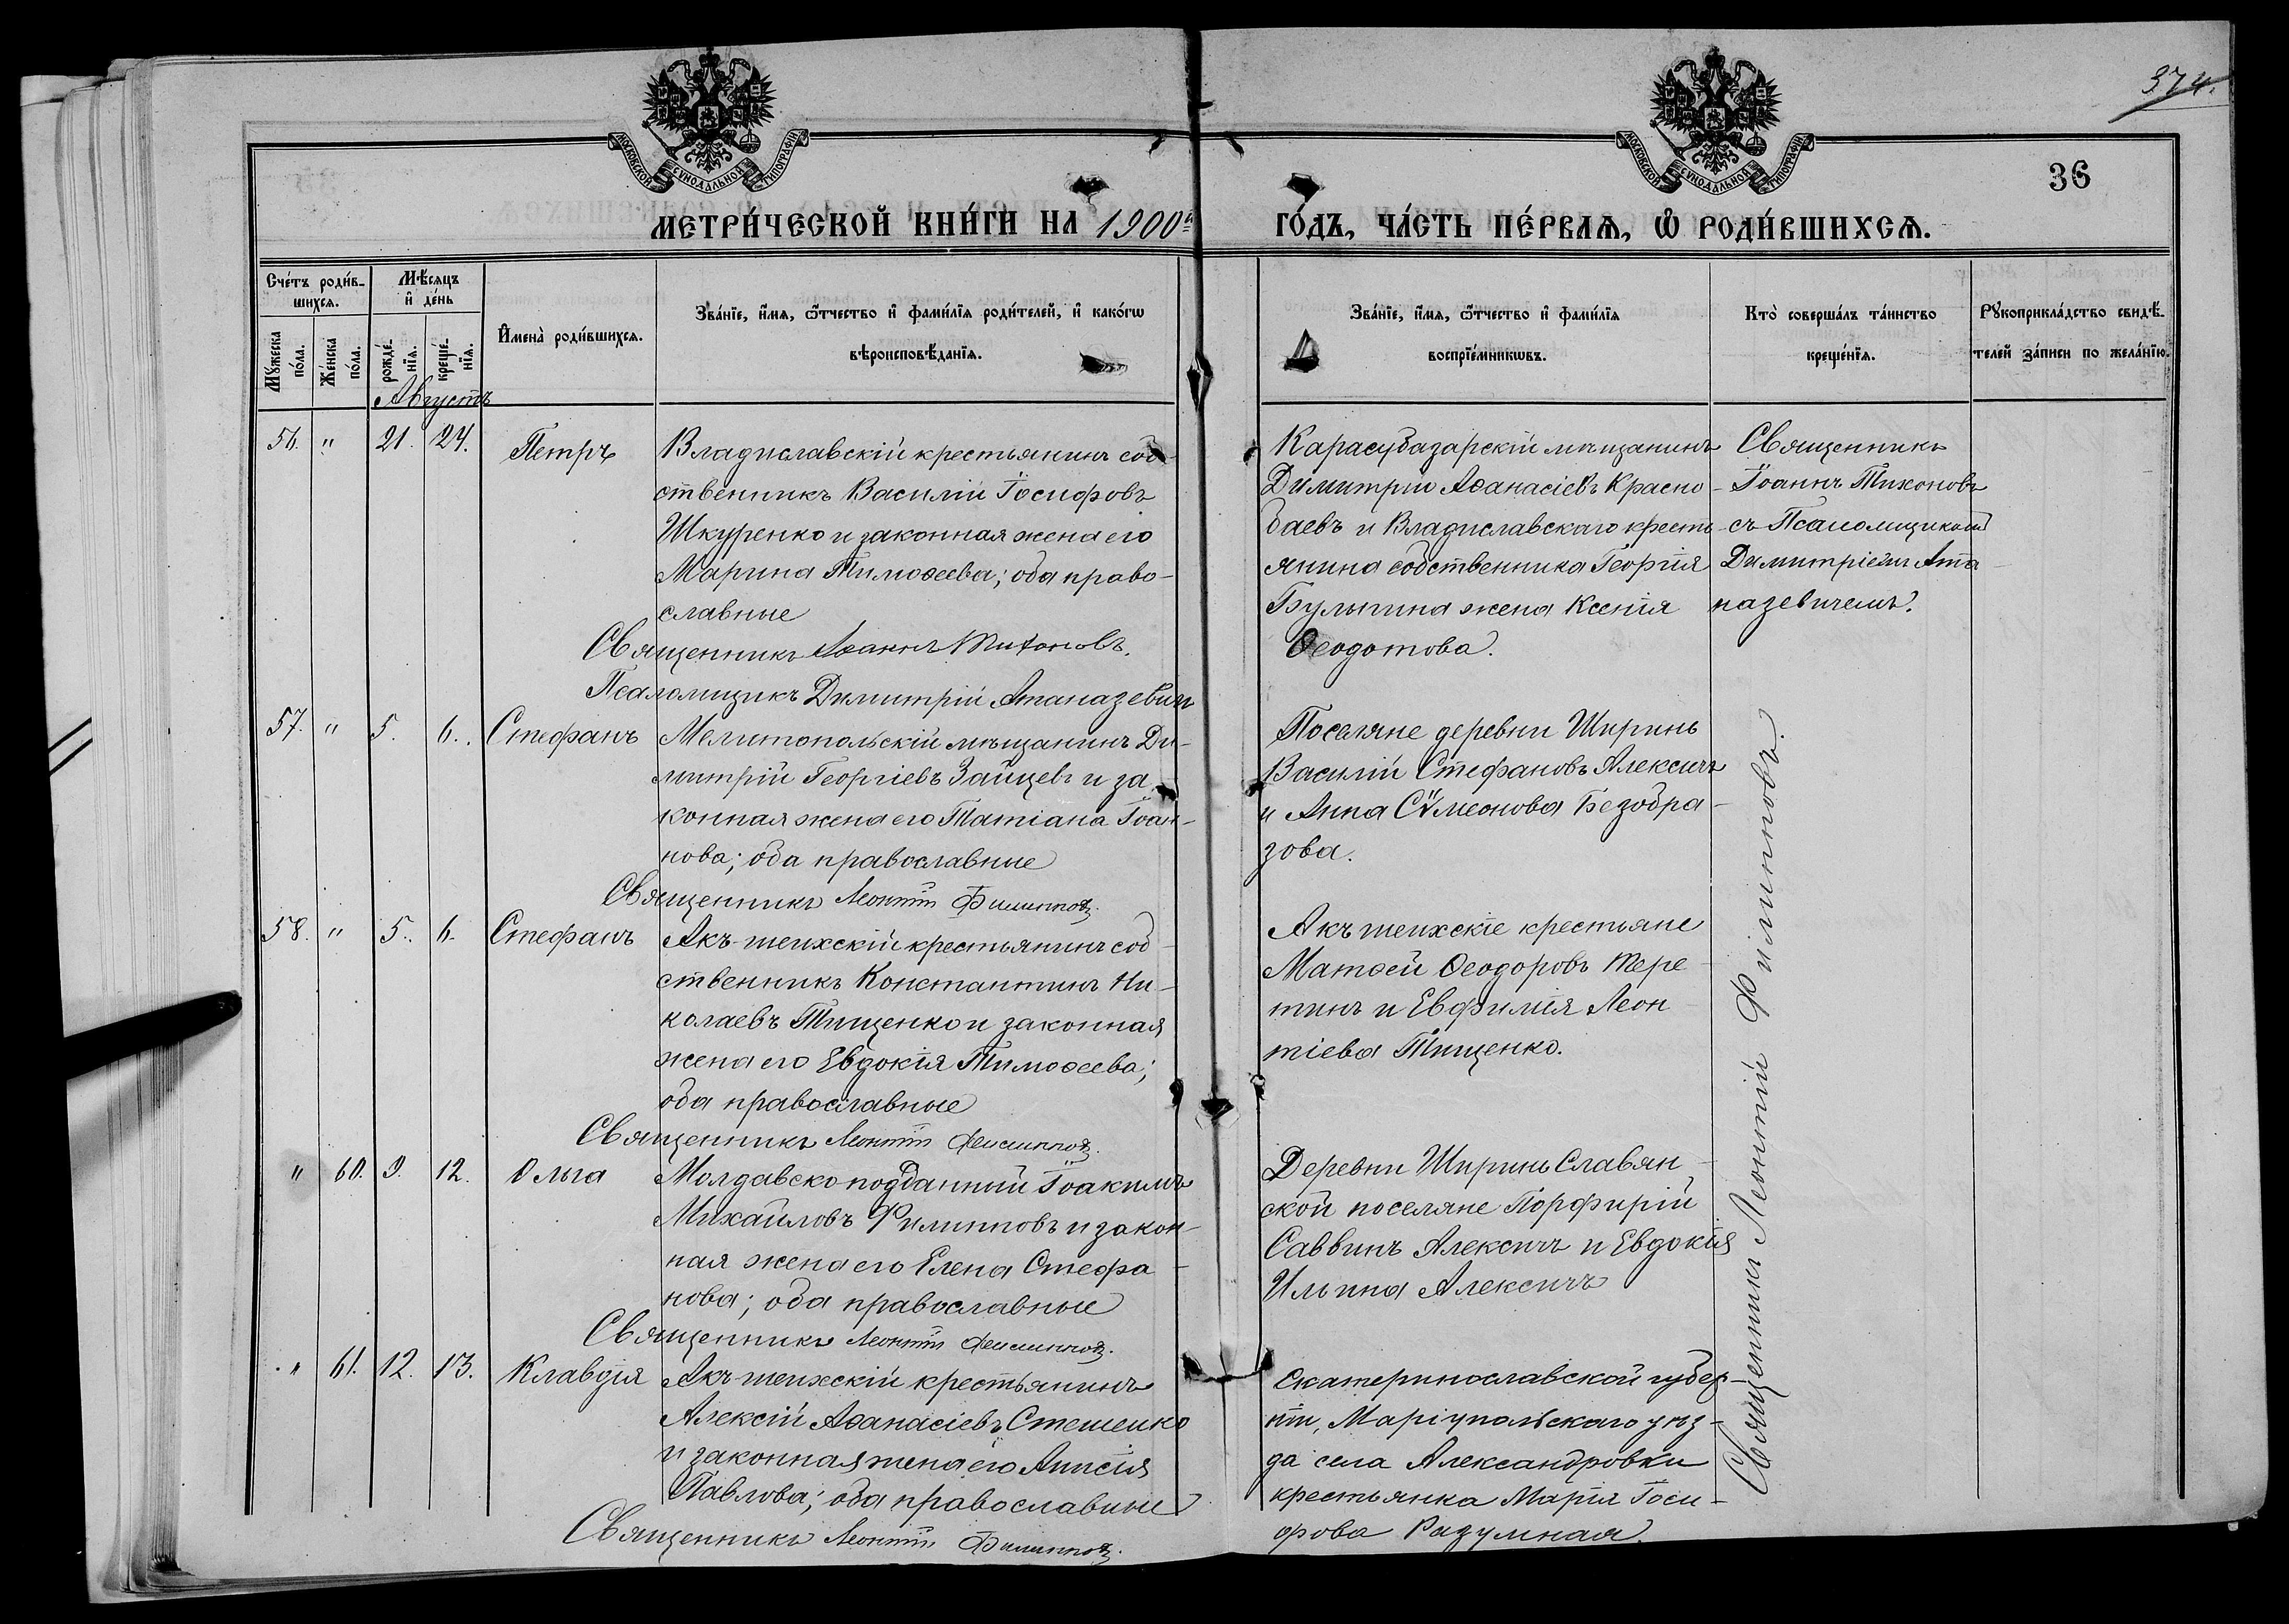 374.
36
МОСКОВСКОЙ СѴНОДАЛЬНОЙ ТИПОГРАФІИ
МОСКОВСКОЙ СѴНОДАЛЬНОЙ ТИПОГРАФІИ
МЕТРИ́ЧЕСКОЙ КНИ́ГИ НА 1900й ГО́ДЪ, ЧА́СТЬ ПЕ́РВАѦ, Ѽ РОДИ́ВШИХСѦ.
Сче́тъ роди́в-
шихся.
Мꙋ́жеска по́ла.
Же́нска по́ла.
Мѣ́сяцъ и҆ де́нь
рожде́нїя.
креще́нїя.
И҆мена̀ роди́вшихся.
Зва́нїе, и҆́мя, ѻ҆́тчество и҆ фами́лїя роди́телей, и҆ како́гѡ
вѣроисповѣ́данїя.
Зва́нїе, и҆́мя, ѻ҆́тчество и҆ фами́лїя
воспрїе́мникѡвъ.
Кто̀ соверша́лъ та́инство
креще́нїя.
Рꙋкоприкла́дство свидѣ́-
телей за́писи по жела́нїю.
Августъ
56. " 21. 24. Петръ
Владиславскій крестьянинъ соб-
ственникъ Василій Іосифовъ
Шкуренко и законная жена его
Марина Тимоѳеева; оба право-
славные
Священникъ Іоаннъ Тихоновъ.
Псаломщикъ Димитрій Атаназевич
Карасубазарскій мѣщанинъ
Димитрій Аѳанасіевъ Красно-
баевъ и Владиславскаго кресть-
янина собственника Георгія
Булыгина жена Ксенія
Ѳеодотова.
Священникъ
Іоаннъ Тихоновъ
съ Псаломщикомъ
Димитріемъ Ата-
назевичемъ.
57. " 5. 6. Стефанъ
Мелитопольскій мѣщанинъ Ди-
митрій Георгіевъ Зайцевъ и за-
конная жена его Татіана Іоан-
нова; оба православные
Священникъ Леонтій Филипповъ.
Поселяне деревни Ширинь
Василій Стефановъ Алексичъ
и Анна Сѵмеонова Безобра-
зова.
58. " 5. 6. Стефанъ
Акъ-шеихскій крестьянинъ соб-
ственникъ Константинъ Ни-
колаевъ Тищенко и законная
жена его Евдокія Тимоѳеева;
оба православные
Священникъ Леонтій Филипповъ.
Акъ шеихскіе крестьяне
Матѳей Ѳеодоровъ Тере-
тинъ и Евфимія Леон-
тіева Тищенко.
" 60. 9. 12. Ольга
Молдавско-подданный Іоакимъ
Михайловъ Филипповъ и закон-
ная жена его Елена Стефа-
нова; оба православные
Священникъ Леонтій Филипповъ.
Деревни Ширинь Славян-
ской поселяне Порфирій
Саввинъ Алексичъ и Евдокія
Ильина Алексичъ
" 61. 12. 13. Клавдія
Акъ-шеихскій крестьянинъ
Алексій Аѳанасіевъ Стешенко
и законная жена его Анисія
Павлова; оба православные
Священникъ Леонтій Филипповъ.
Екатеринославской губер-
ніи, Маріупольскаго уѣз-
да села Александровки
крестьянка Марія Іоси-
фова Разумная.
Священникъ Леонтій Филипповъ.